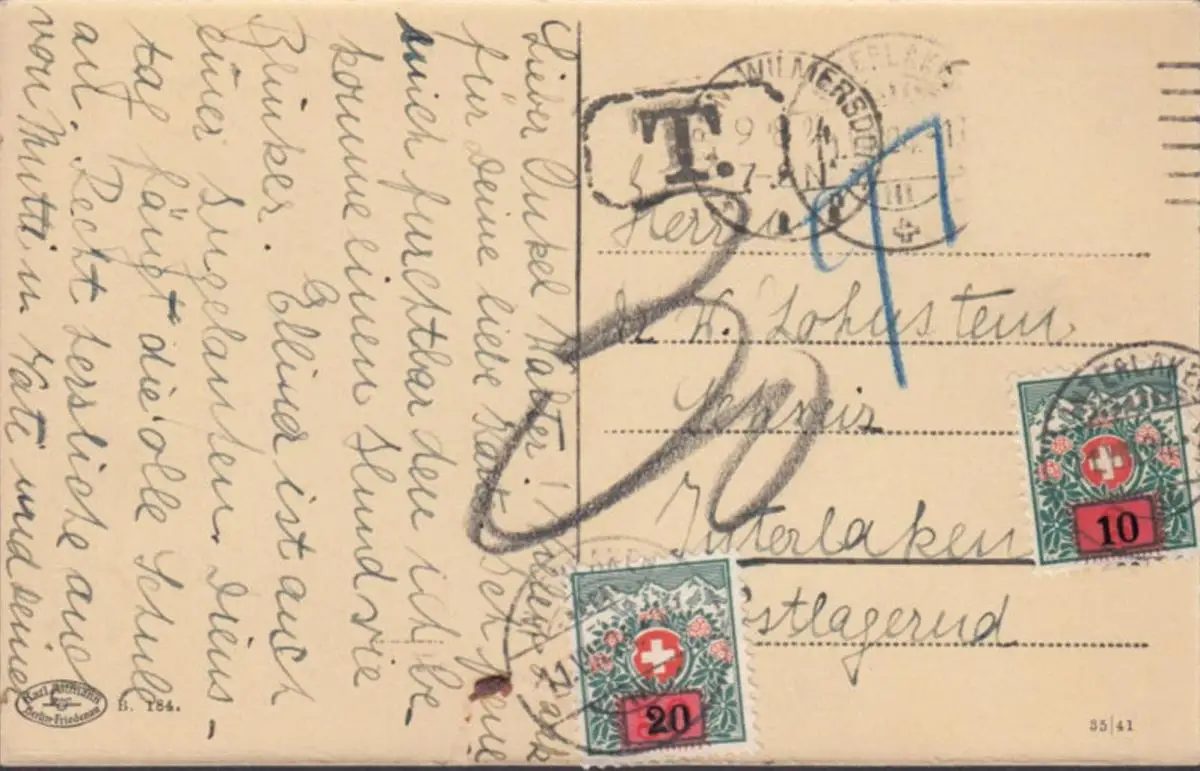 Lieber Onkel Walter! Vielen Dank
für Deine liebe Karte. Ich freue
mich furchtbar denn ich be-
komme einen Hund wie
Blinker. Ellinor ist auch
eine Engelanten. Diens-
tag fängt die olle Schule
an. Recht herzliche auch
von Mutti u Vati und Deiner
T.
WILMERSDORF
9 8 24
7-8 N
INTERLAKEN
III
Herrn
Dr. H. Lohnstein
Interlaken
Postlagernd
30
10
20
Karl
Berlin-Friedenau
B. 184.
35|41